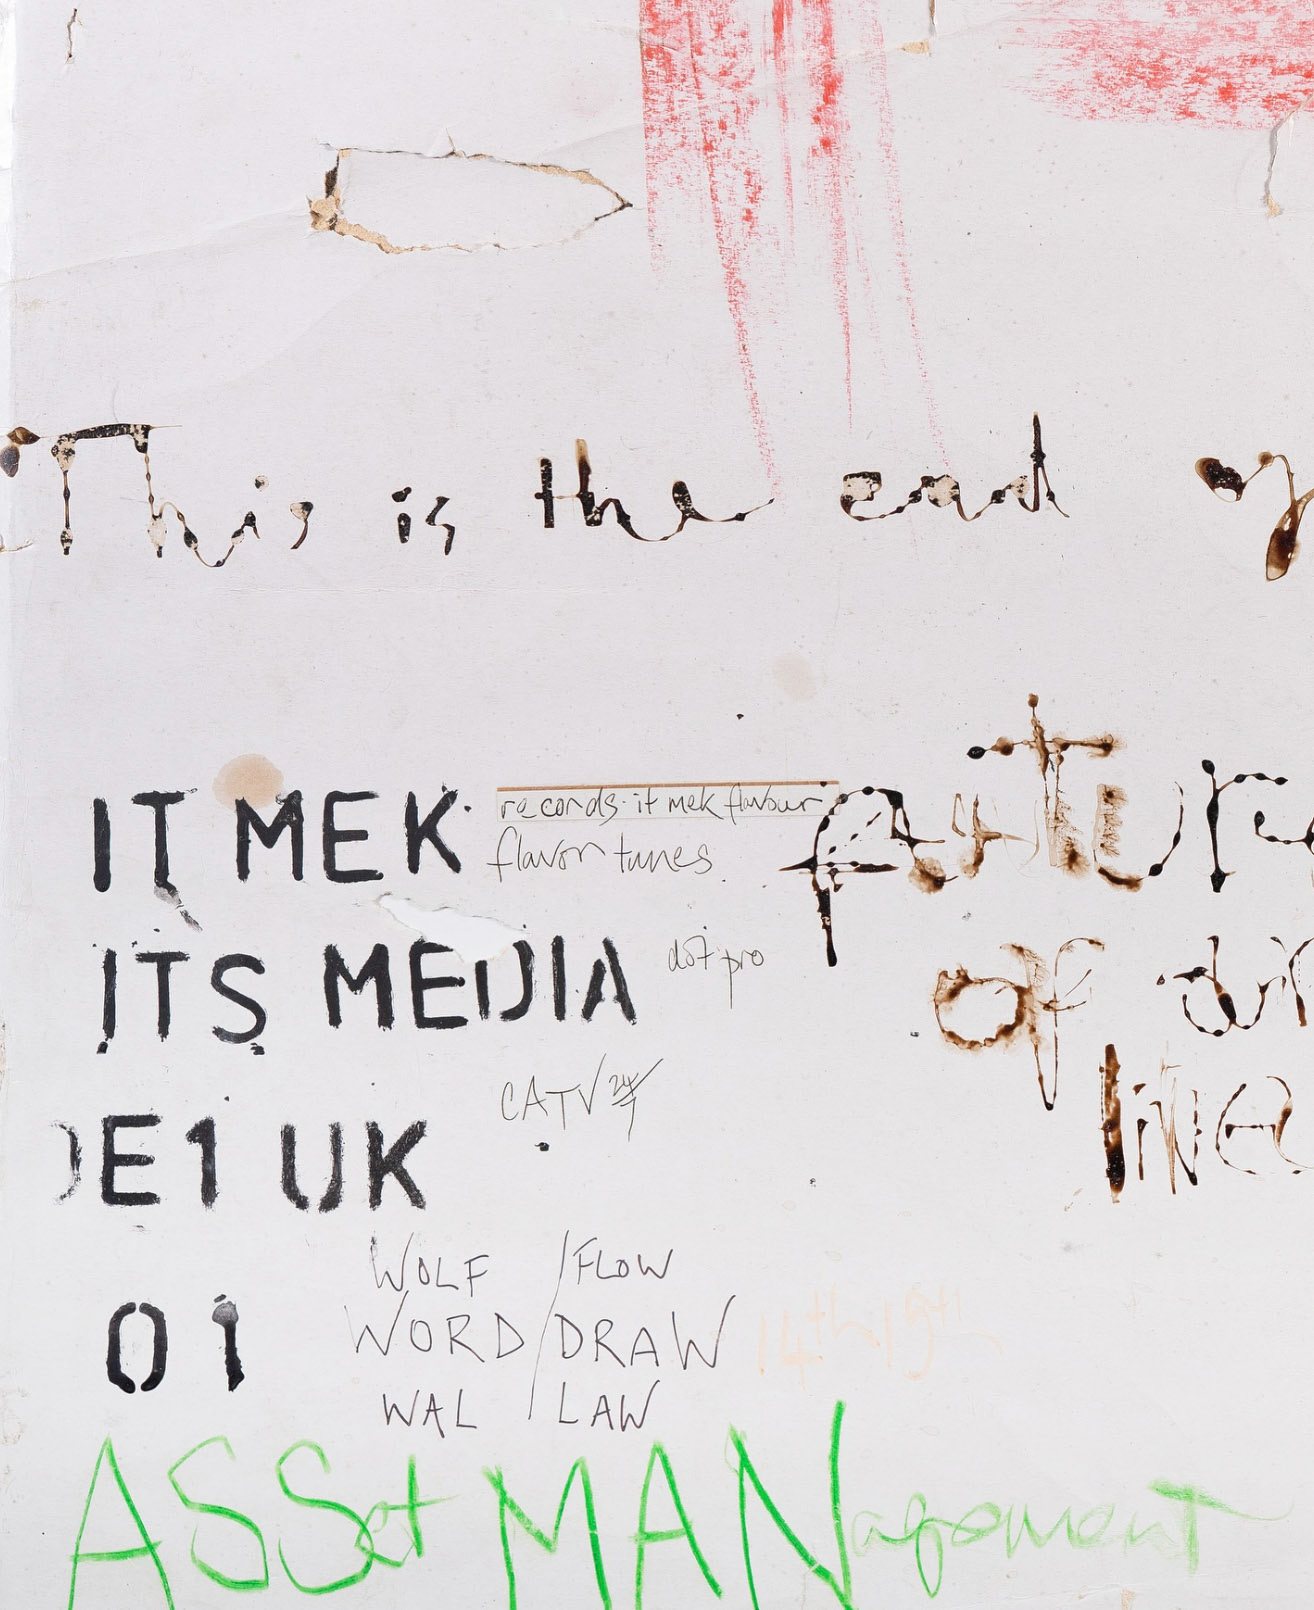 This is the end
IT MEK
records·it mek flavour
flavor tunes
ITS MEDIA
dot pro
of
E1 UK
CATV 24/7
WOLF / FLOW
WORD / DRAW
WAL / LAW
01
14th 19th
ASSet MANagement